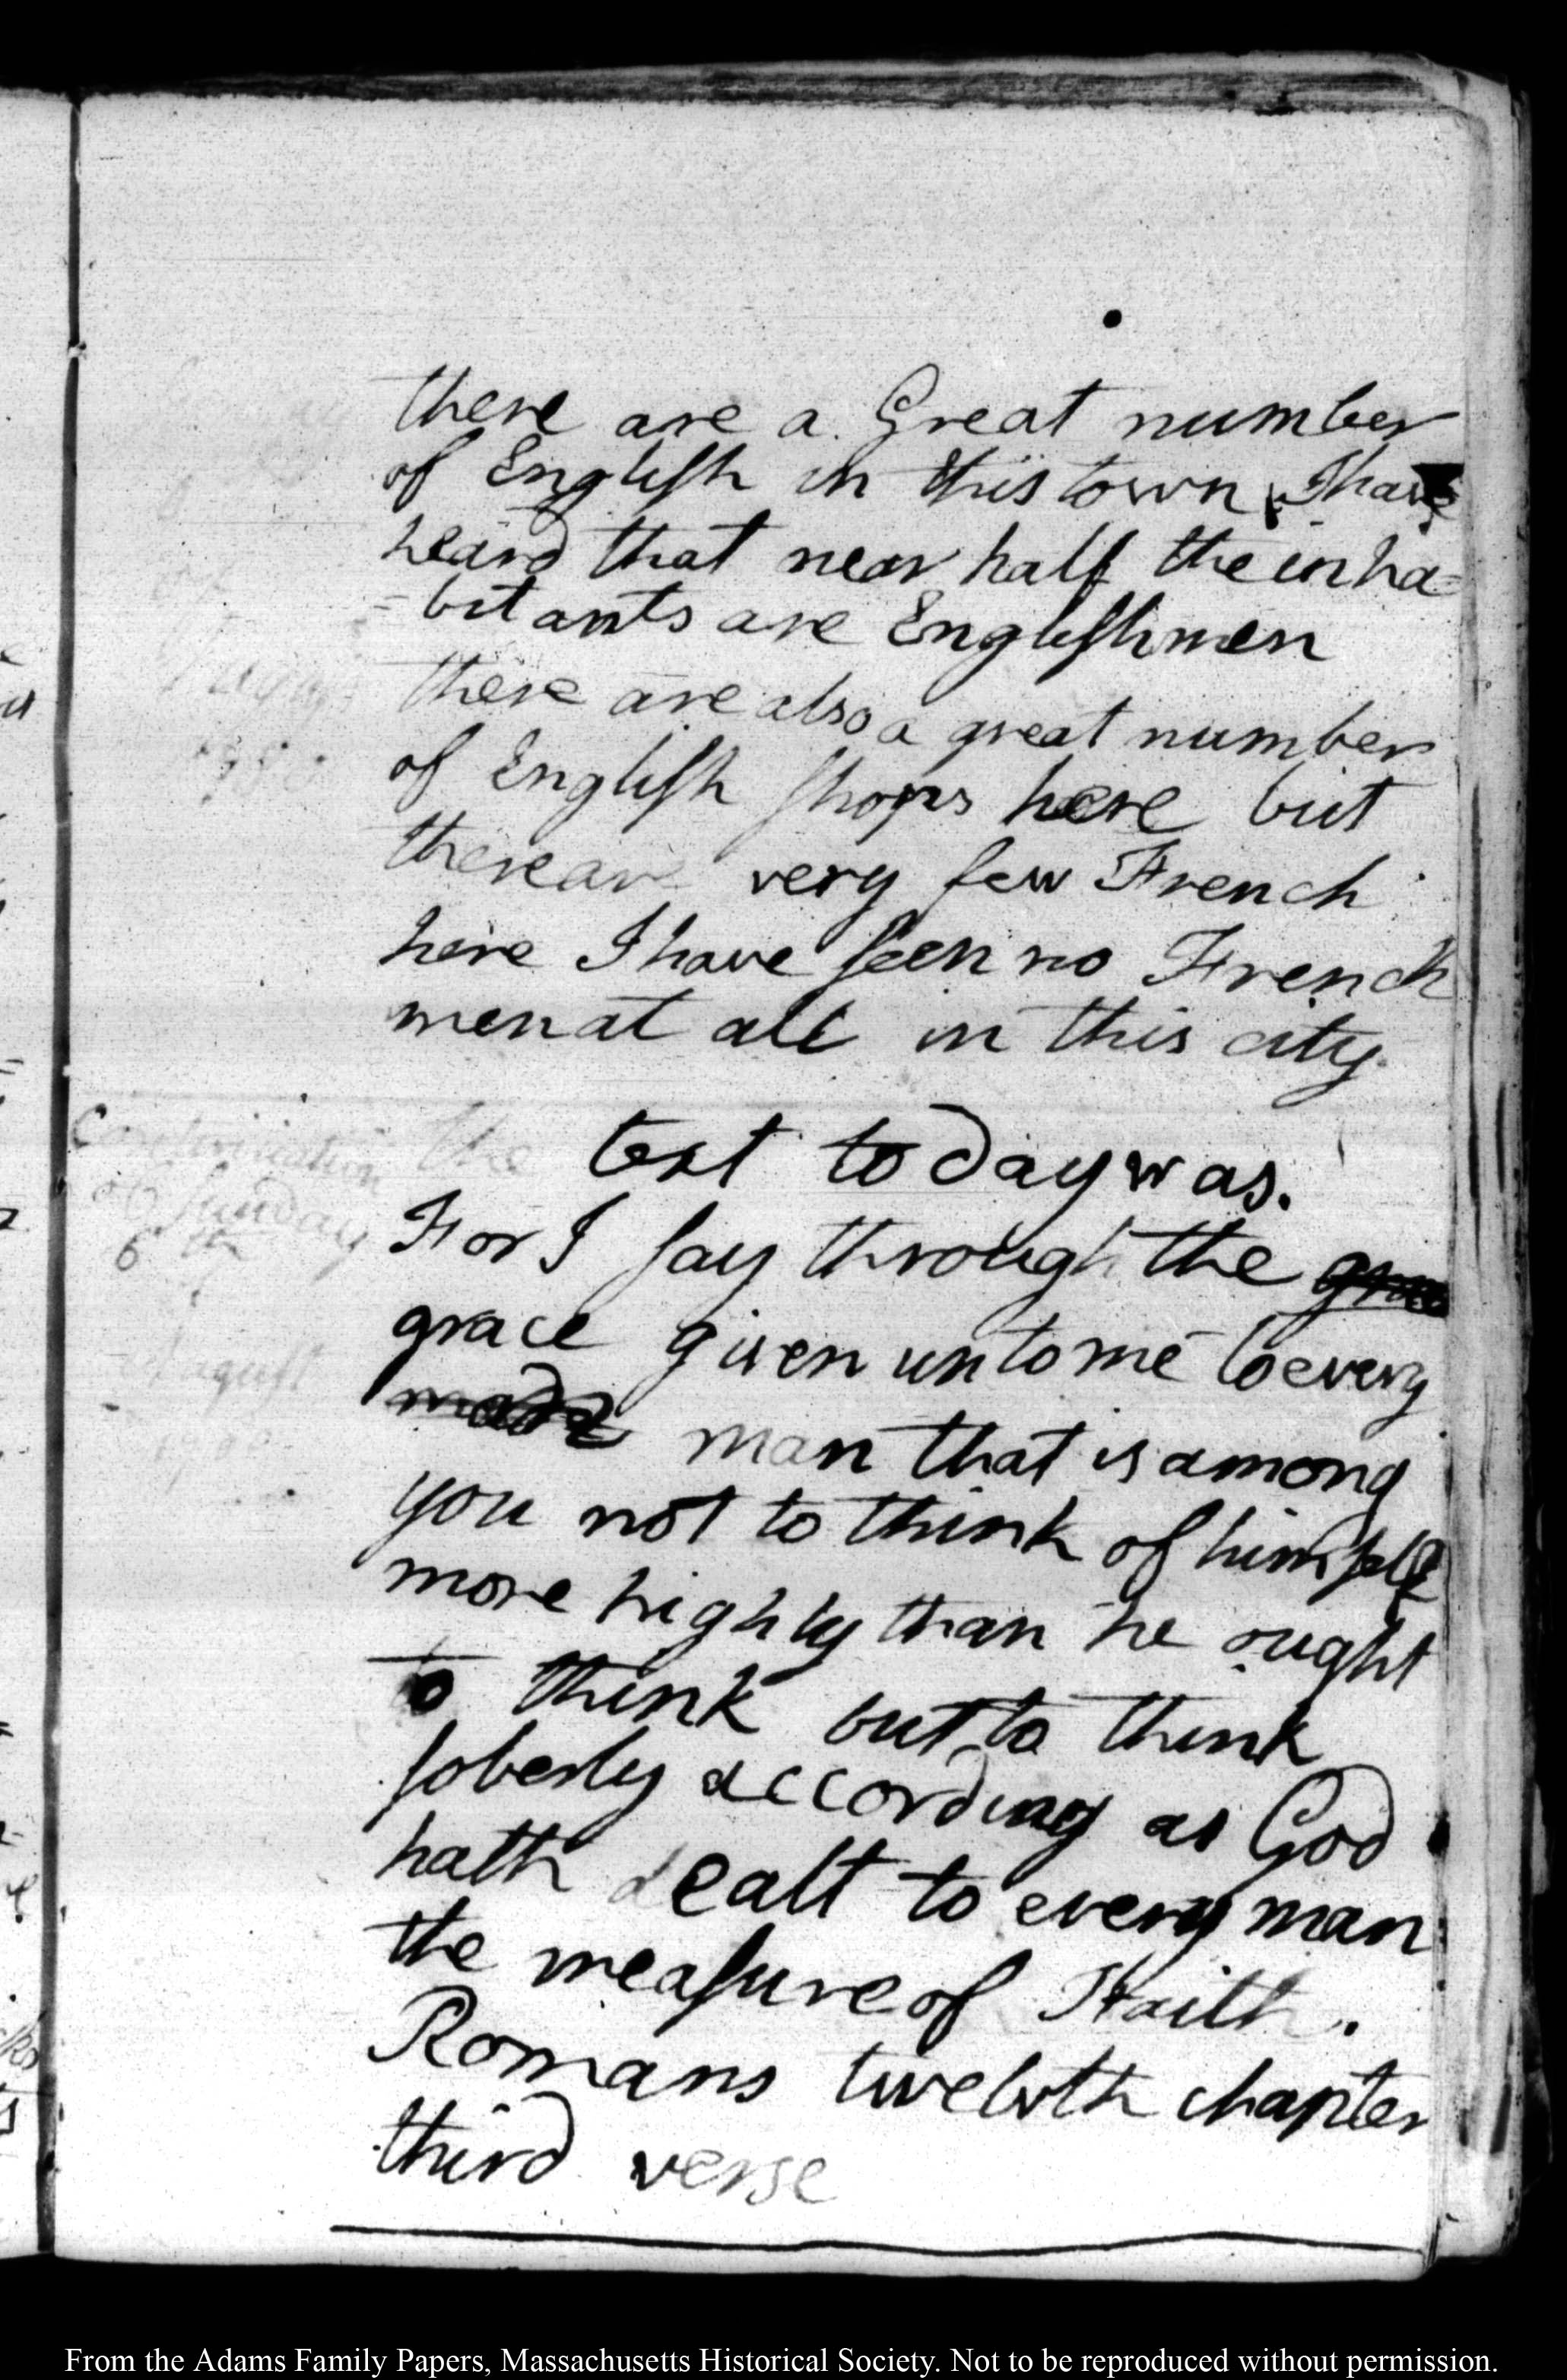 there are a Great number
of Engliſh in this town, I have
heard that near half the inha=
=bitants are Engliſhmen
there are also a great number
of Engliſh ſhops here but
there are very few French
here I have ſeen no French
men at all in this city.
Continuation
of Sunday
6th
August
1780
the text today was.
For I ſay through the
grace given unto me to every
man that is among
you not to think of himſelf
more highly than he ought
to think but to think
ſoberly according as God
hath dealt to every man
the meaſure of Faith.
Romans twelvth chapter
third verse
From the Adams Family Papers, Massachusetts Historical Society. Not to be reproduced without permission.